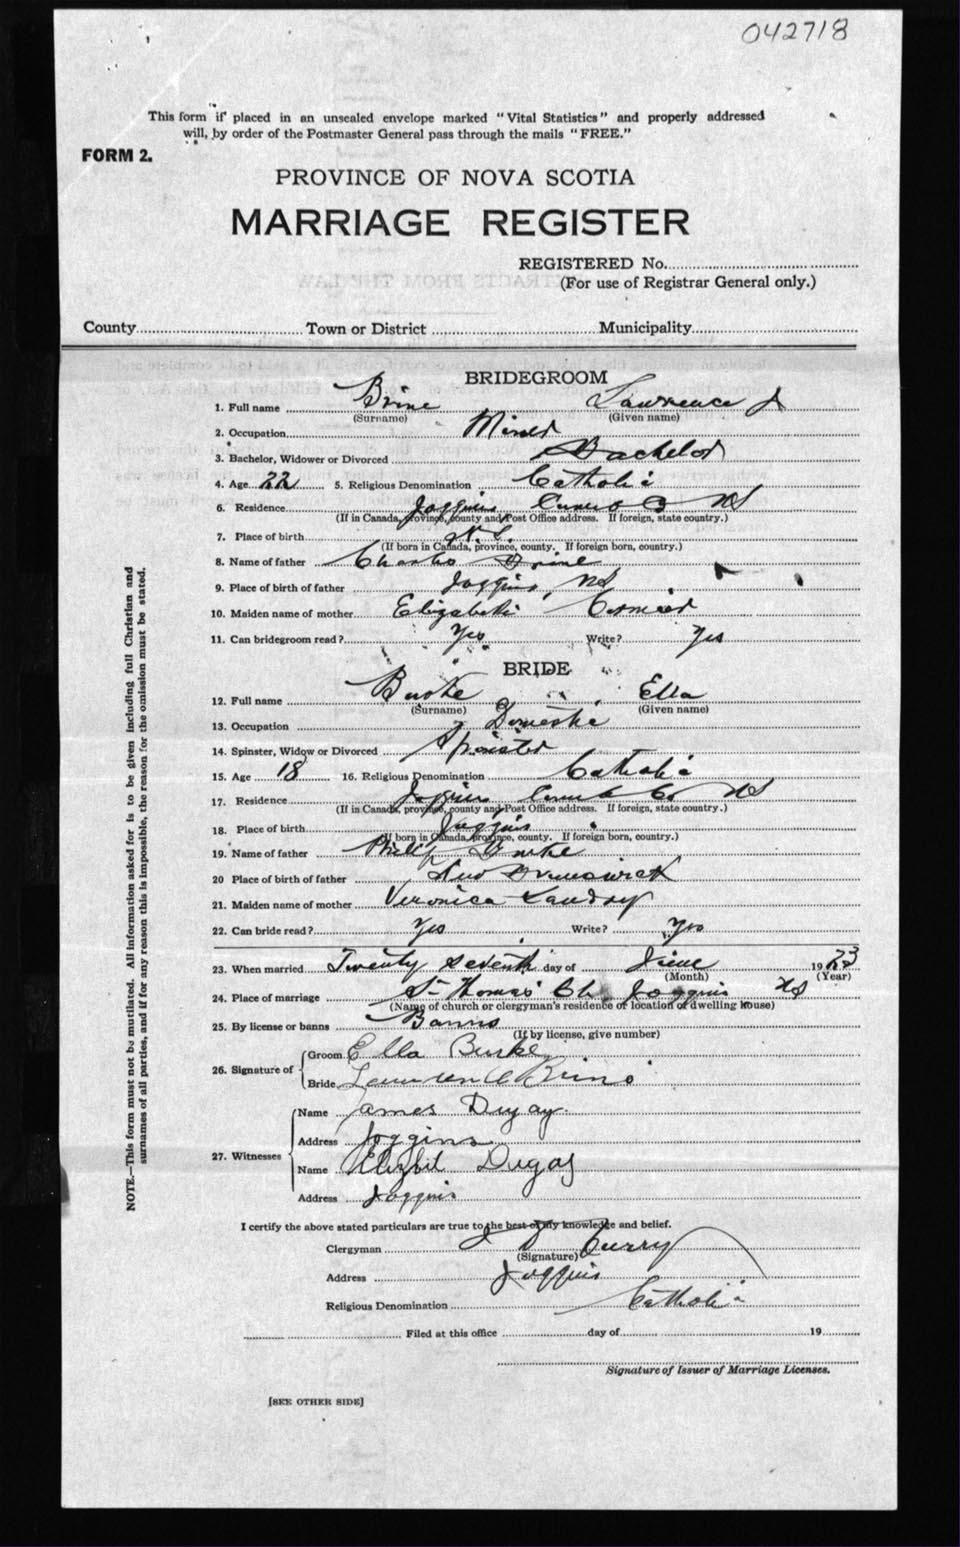 042718
This form if placed in an unsealed envelope marked "Vital Statistics" and properly addressed
will, by order of the Postmaster General pass through the mails "FREE."
FORM 2.
PROVINCE OF NOVA SCOTIA
MARRIAGE REGISTER
REGISTERED No.
(For use of Registrar General only.)
County Town or District Municipality
BRIDEGROOM
1. Full name Brine Lawrence J
(Surname) (Given name)
2. Occupation Miner
3. Bachelor, Widower or Divorced Bachelor
4. Age 22 5. Religious Denomination Catholic
6. Residence Joggins Co NS
(If in Canada, province, county and Post Office address. If foreign, state country.)
7. Place of birth N.S.
(If born in Canada, province, county. If foreign born, country.)
8. Name of father Charles Brine
9. Place of birth of father Joggins, NS
10. Maiden name of mother Elizabeth Cormier
11. Can bridegroom read? Yes Write? Yes
BRIDE
12. Full name Burke Ella
(Surname) (Given name)
13. Occupation Domestic
14. Spinster, Widow or Divorced Spinster
15. Age 18 16. Religious Denomination Catholic
17. Residence Joggins Cumb Co NS
(If in Canada, province, county and Post Office address. If foreign, state country.)
18. Place of birth Joggins
(If born in Canada, province, county. If foreign born, country.)
19. Name of father Philip Burke
20 Place of birth of father New Brunswick
21. Maiden name of mother Veronica Landry
22. Can bride read? Yes Write? Yes
23. When married Twenty Seventh day of June 1923
(Month) (Year)
24. Place of marriage St Thomas' Ch. Joggins NS
(Name of church or clergyman's residence or location of dwelling house)
25. By license or banns Banns
(If by license, give number)
26. Signature of Groom Ella Burke
Bride Lawrence Brine
27. Witnesses Name James Dugay
Address Joggins
Name Dugas
Address Joggins
I certify the above stated particulars are true to the best of my knowledge and belief.
Clergyman J D Curry
(Signature)
Address Joggins
Religious Denomination Catholic
Filed at this office day of 19
Signature of Issuer of Marriage Licenses.
[SEE OTHER SIDE]
NOTE.—This form must not be mutilated. All information asked for is to be given including full Christian and
surnames of all parties, and if for any reason this is impossible, the reason for the omission must be stated.